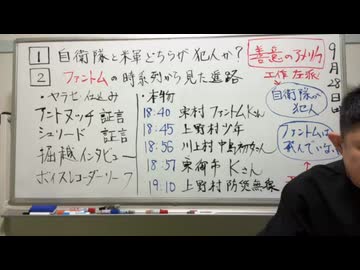 1 自衛隊と米軍どちらが犯人か?
2 ファントムの時系列から見た進路
・ヤラセ・仕込み
アントヌッチ 証言
シュリード 証言
堀越インタビュー
ボイスレコーダーリーフ
・本物
18:40 東村 ファントムKさん
18:45 上野村少年
18:56 川上村 中島初女さん
18:57 東御市 Kさん
19:10 上野村 防災無線
善意のアメリカ
工作 左派
自衛隊が
犯人
ファントムは
9月28日